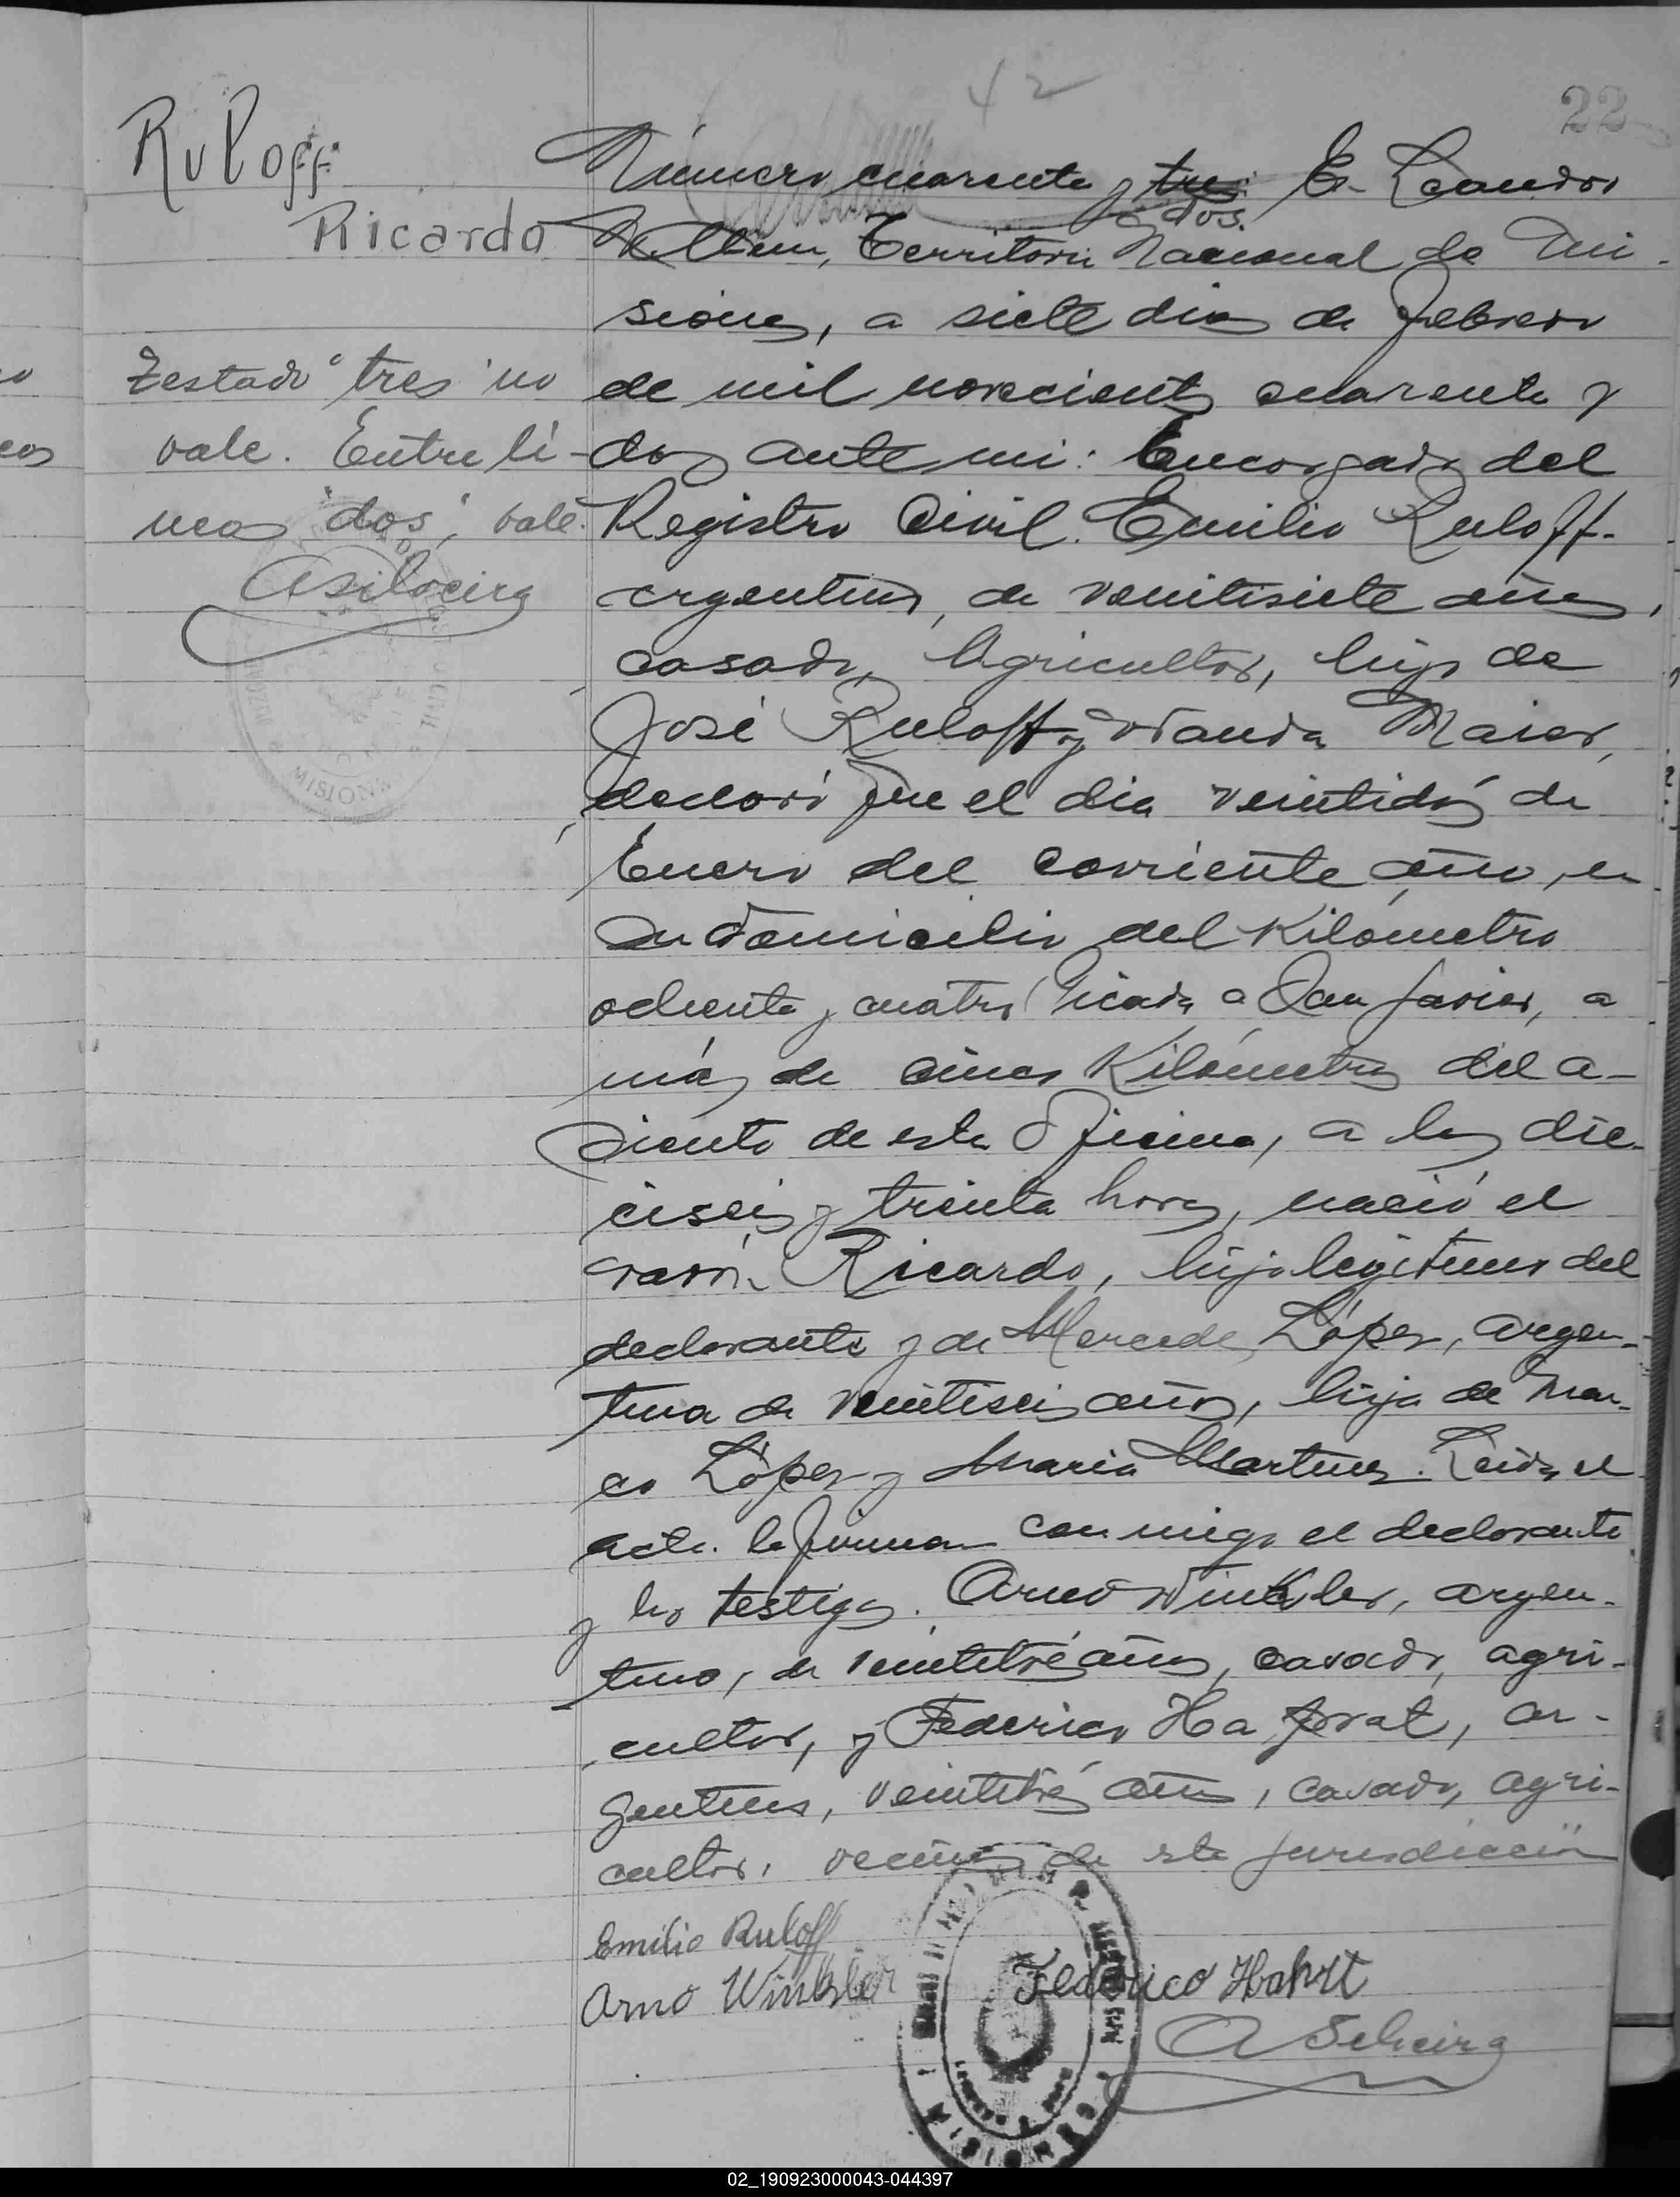 42
22
Ruloff
Ricardo
Testado "tres" no
vale. Entre lí-
neas "dos", vale.
ASilveira
MISIONES
Número cuarenta y tres. En Leandro
dos.
N. Alem, Territorio Nacional de Mi-
siones, a siete dias de Febrero
de mil novecientos cuarenta y
dos ante mi: Encargado del
Registro Civil. Emilio Ruloff.
argentino, de veintisiete años,
casado, Agricultor, hijo de
José Ruloff y Wanda Maier,
declaró que el dia veintidós de
Enero del corriente año, en
su domicilio del Kilómetro
ochenta y cuatro Picada a San Javier, a
más de cinco Kilómetros del a-
siento de esta Oficina, a las die-
ciseis y treinta horas, nació el
varón Ricardo, hijo legítimo del
declarante y de Mercedes López, argen-
tina de veintiseis años, hija de Mar-
co López y Maria Martinez. Leida el
acta. la firman conmigo el declarante
y los testigos. Arno Winkler, argen-
tino, de veintitrés años, casado, agri-
cultor, y Federico Ha, ar-
gentino, veintitrés años, casado, agri-
cultor, vecinos de esta jurisdicción
Emilio Ruloff
Arno Winkler
Federico Hahrt
ASilveira
02_190923000043-044397